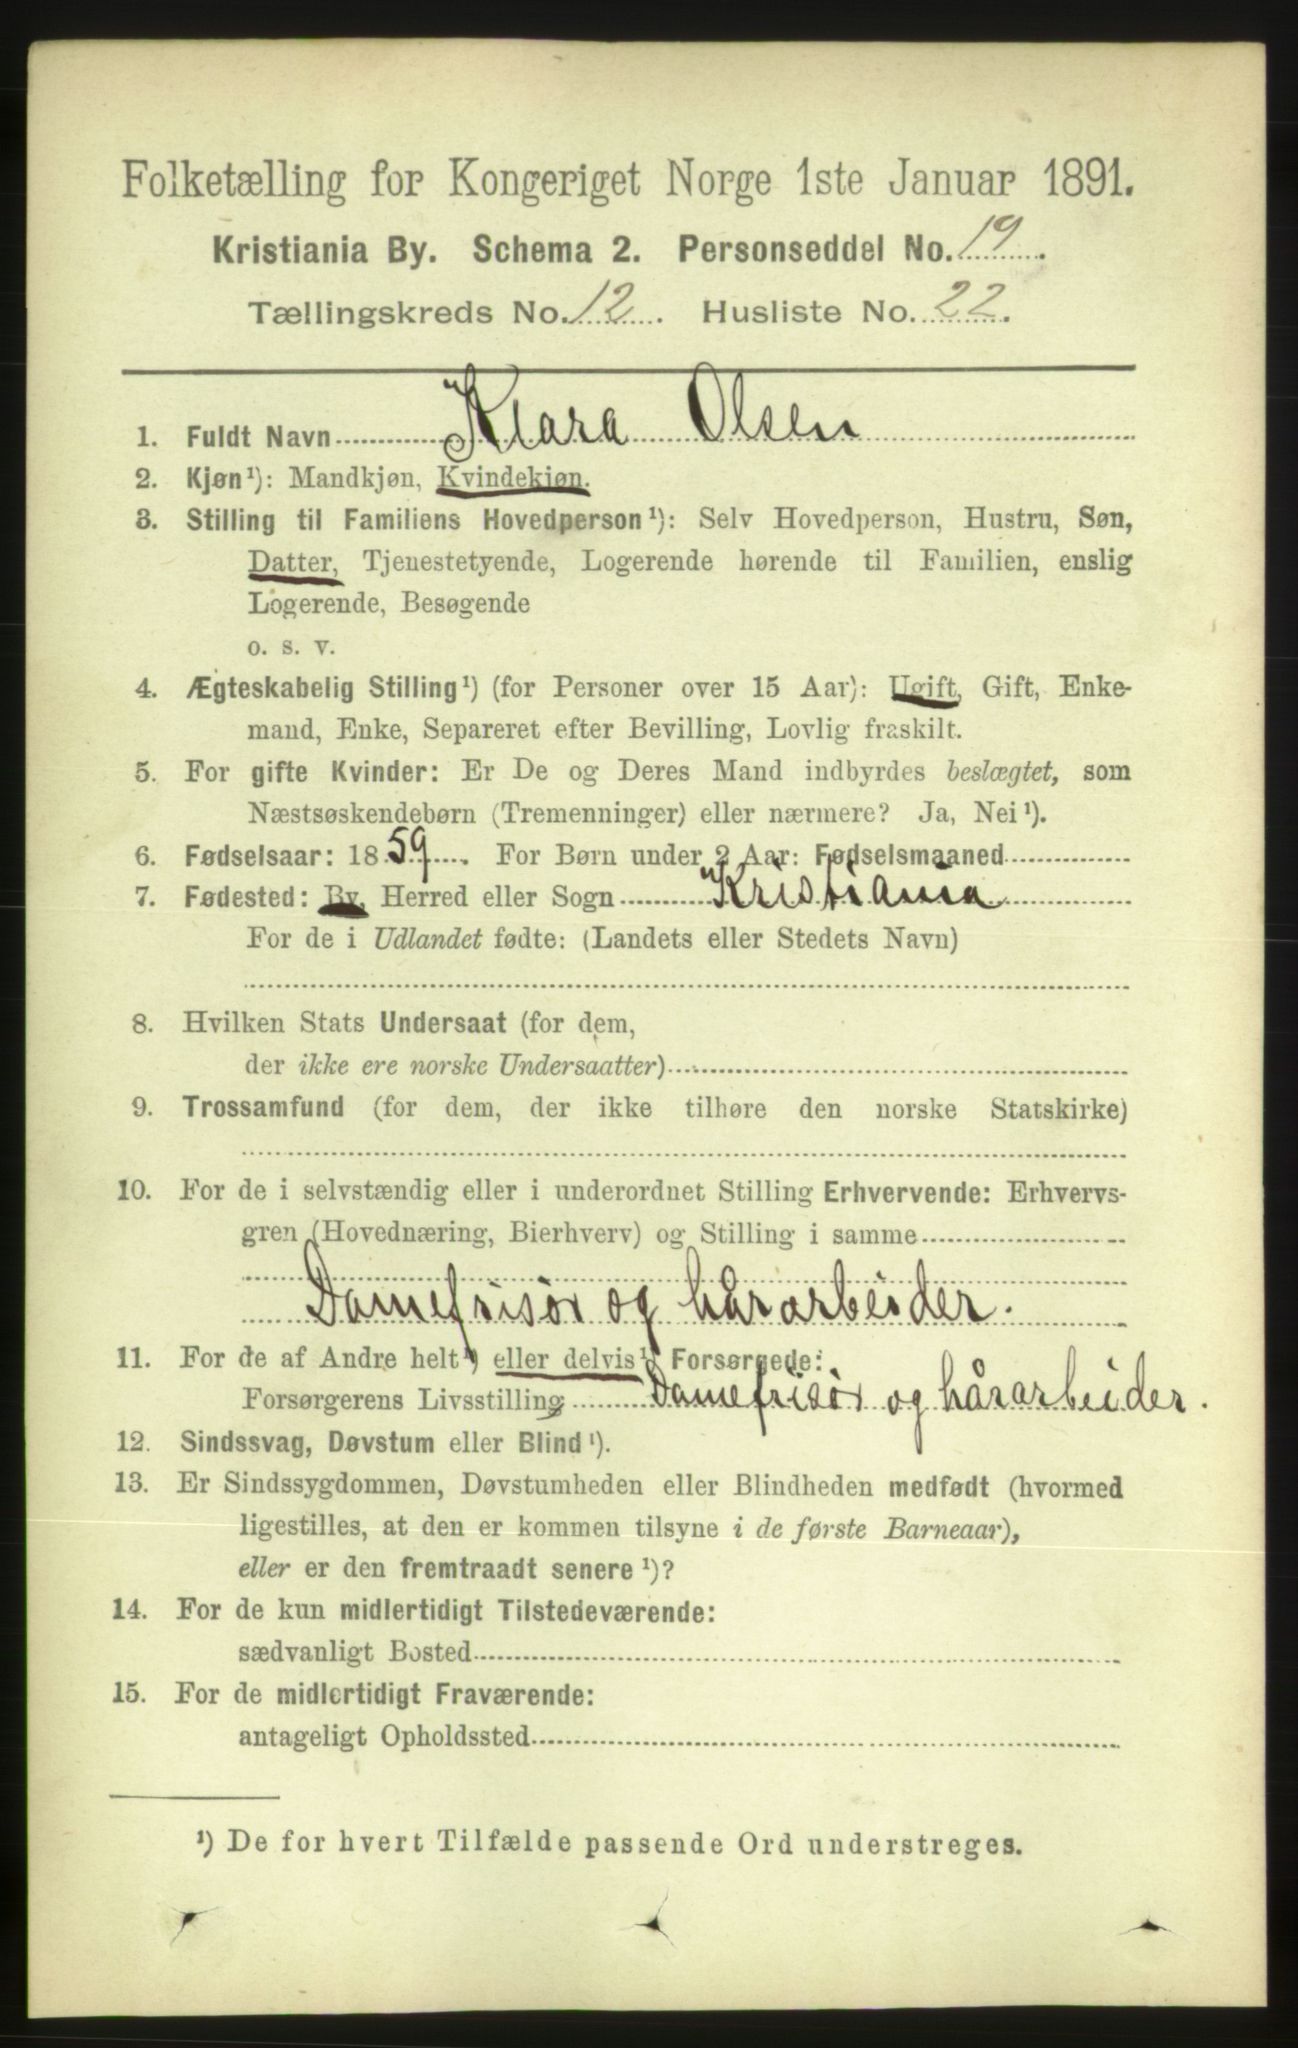 Folketælling for Kongeriget Norge 1ste Januar 1891.
Kristiania By. Schema 2. Personseddel No. 19.
Tællingskreds No. 12. Husliste No. 22.
1. Fuldt Navn Klara Olsen
2. Kjøn¹): Mandkjøn, Kvindekjøn.
3. Stilling til Familiens Hovedperson¹): Selv Hovedperson, Hustru, Søn,
Datter, Tjenestetyende, Logerende hørende til Familien, enslig
Logerende, Besøgende
o. s. v.
4. Ægteskabelig Stilling¹) (for Personer over 15 Aar): Ugift, Gift, Enke-
mand, Enke, Separeret efter Bevilling, Lovlig fraskilt.
5. For gifte Kvinder: Er De og Deres Mand indbyrdes beslægtet, som
Næstsøskendebørn (Tremenninger) eller nærmere? Ja, Nei¹).
6. Fødselsaar: 1859. For Børn under 2 Aar: Fødselsmaaned
7. Fødested: By, Herred eller Sogn Kristiania
For de i Udlandet fødte: (Landets eller Stedets Navn)
8. Hvilken Stats Undersaat (for dem,
der ikke ere norske Undersaatter)
9. Trossamfund (for dem, der ikke tilhøre den norske Statskirke)
10. For de i selvstændig eller i underordnet Stilling Erhvervende: Erhvervs-
gren (Hovednæring, Bierhverv) og Stilling i samme
Damefrisør og hårarbeider.
11. For de af Andre helt¹) eller delvis¹) Forsørgede:
Forsørgerens Livsstilling Damefrisør og hårarbeider.
12. Sindssvag, Døvstum eller Blind¹).
13. Er Sindssygdommen, Døvstumheden eller Blindheden medfødt (hvormed
ligestilles, at den er kommen tilsyne i de første Barneaar),
eller er den fremtraadt senere¹)?
14. For de kun midlertidigt Tilstedeværende:
sædvanligt Bosted
15. For de midlertidigt Fraværende:
antageligt Opholdssted
¹) De for hvert Tilfælde passende Ord understreges.